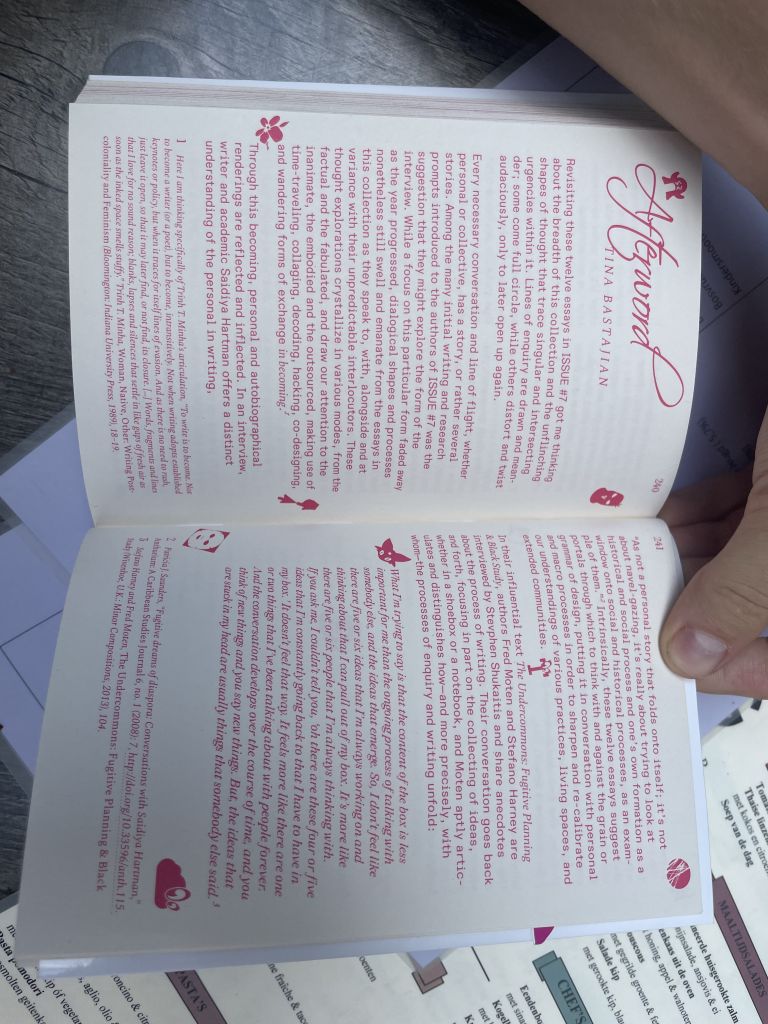 Afterword
TINA BASTAJIAN
Revisiting these twelve essays in ISSUE #7 got me thinking
about the breadth of this collection and the unflinching
shapes of thought that trace singular and intersecting
urgencies within it. Lines of enquiry are drawn and mean-
der; some come full circle, while others distort and twist
audaciously, only to later open up again.
Every necessary conversation and line of flight, whether
personal or collective, has a story, or rather several
stories. Among the many initial writing and research
prompts introduced to the authors of ISSUE #7 was the
suggestion that they might explore the form of the
interview. While a focus on this particular form faded away
as the year progressed, dialogical shapes and processes
nonetheless still swell and emanate from the essays in
this collection as they speak to, with, alongside and at
variance with their unpredictable interlocutors. These
thought explorations crystallize in various modes, from the
factual and the fabulated, and draw our attention to the
inanimate, the embodied and the outsourced, making use of
time-traveling, collaging, decoding, hacking, co-designing,
and wandering forms of exchange in becoming.¹
Through this becoming, personal and autobiographical
renderings are reflected and inflected. In an interview,
writer and academic Saidiya Hartman offers a distinct
understanding of the personal in writing,
1 Here I am thinking specifically of Trinh T. Minha's articulation, "To write is to become. Not
to become a writer (or a poet), but to become, intransitively. Not when writing adopts established
keynotes or policy, but when it traces for itself lines of evasion. And as there is no need to rush,
just leave it open, so that it may later find, or not find, its closure. [...] Words, fragments and lines
that I love for no sound reason; blanks, lapses and silences that settle in like gaps of fresh air as
soon as the inked space smells stuffy," Trinh T. Minha, Woman, Native, Other: Writing Post-
coloniality and Feminism (Bloomington: Indiana University Press, 1989), 18–19.
240
241
"As not a personal story that folds onto itself; it's not
about navel-gazing, it's really about trying to look at
historical and social process and one's own formation as a
window onto social and historical processes, as an exam-
ple of them."² Intrinsically, these twelve essays suggest
portals through which to think with and against the grain or
grammar of design, putting it in conversation with personal
and macro processes in order to sharpen and re-calibrate
our understandings of various practices, living spaces, and
extended communities.
In their influential text The Undercommons: Fugitive Planning
& Black Study, authors Fred Moten and Stefano Harney are
interviewed by Stevphen Shukaitis and share anecdotes
about the process of writing. Their conversation goes back
and forth, focusing in part on the collecting of ideas,
whether in a shoebox or a notebook, and Moten aptly artic-
ulates and distinguishes how—and more precisely, with
whom—the processes of enquiry and writing unfold:
What I'm trying to say is that the content of the box is less
important for me than the ongoing process of talking with
somebody else, and the ideas that emerge. So, I don't feel like
there are five or six ideas that I'm always working on and
thinking about that I can pull out of my box. It's more like
there are five or six people that I'm always thinking with.
If you ask me, I couldn't tell you, 'oh there are these four or five
ideas that I'm constantly going back to that I have to have in
my box.' It doesn't feel that way. It feels more like there are one
or two things that I've been talking about with people forever.
And the conversation develops over the course of time, and you
think of new things and you say new things. But, the ideas that
are stuck in my head are usually things that somebody else said.³
2 Patricia J. Saunders, "Fugitive dreams of diaspora: Conversations with Saidiya Hartman,"
Anthurium: A Caribbean Studies Journal 6, no. 1 (2008): 7, http://doi.org/10.33596/anth.115.
3 Stefano Harney and Fred Moten, The Undercommons: Fugitive Planning & Black
Study (Wivenhoe, U.K.: Minor Compositions, 2013), 104.
Soep van de dag
MAALTIJDSALADES
Salade kip
CHEF'S
PASTA'S